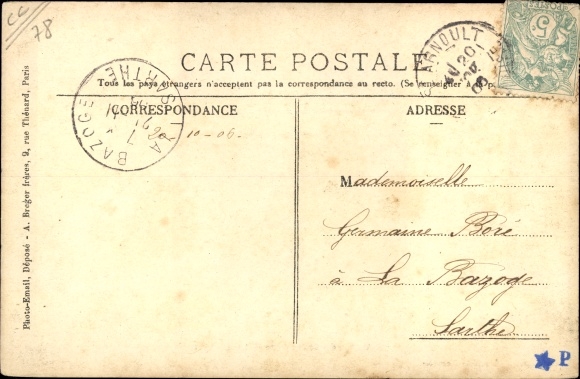 CC
78
CARTE POSTALE
Tous les pays étrangers n'acceptent pas la correspondance au recto. (Se renseigner à la p
CORRESPONDANCE
ADRESSE
LA BAZOGE
SARTHE
ARNOULT
20
5
20-10-06.
Mademoiselle
Germaine Boré
à La Bazoge
Sarthe
Photo-Email. Déposé - A. Breger frères, 9, rue Thénard, Paris
P